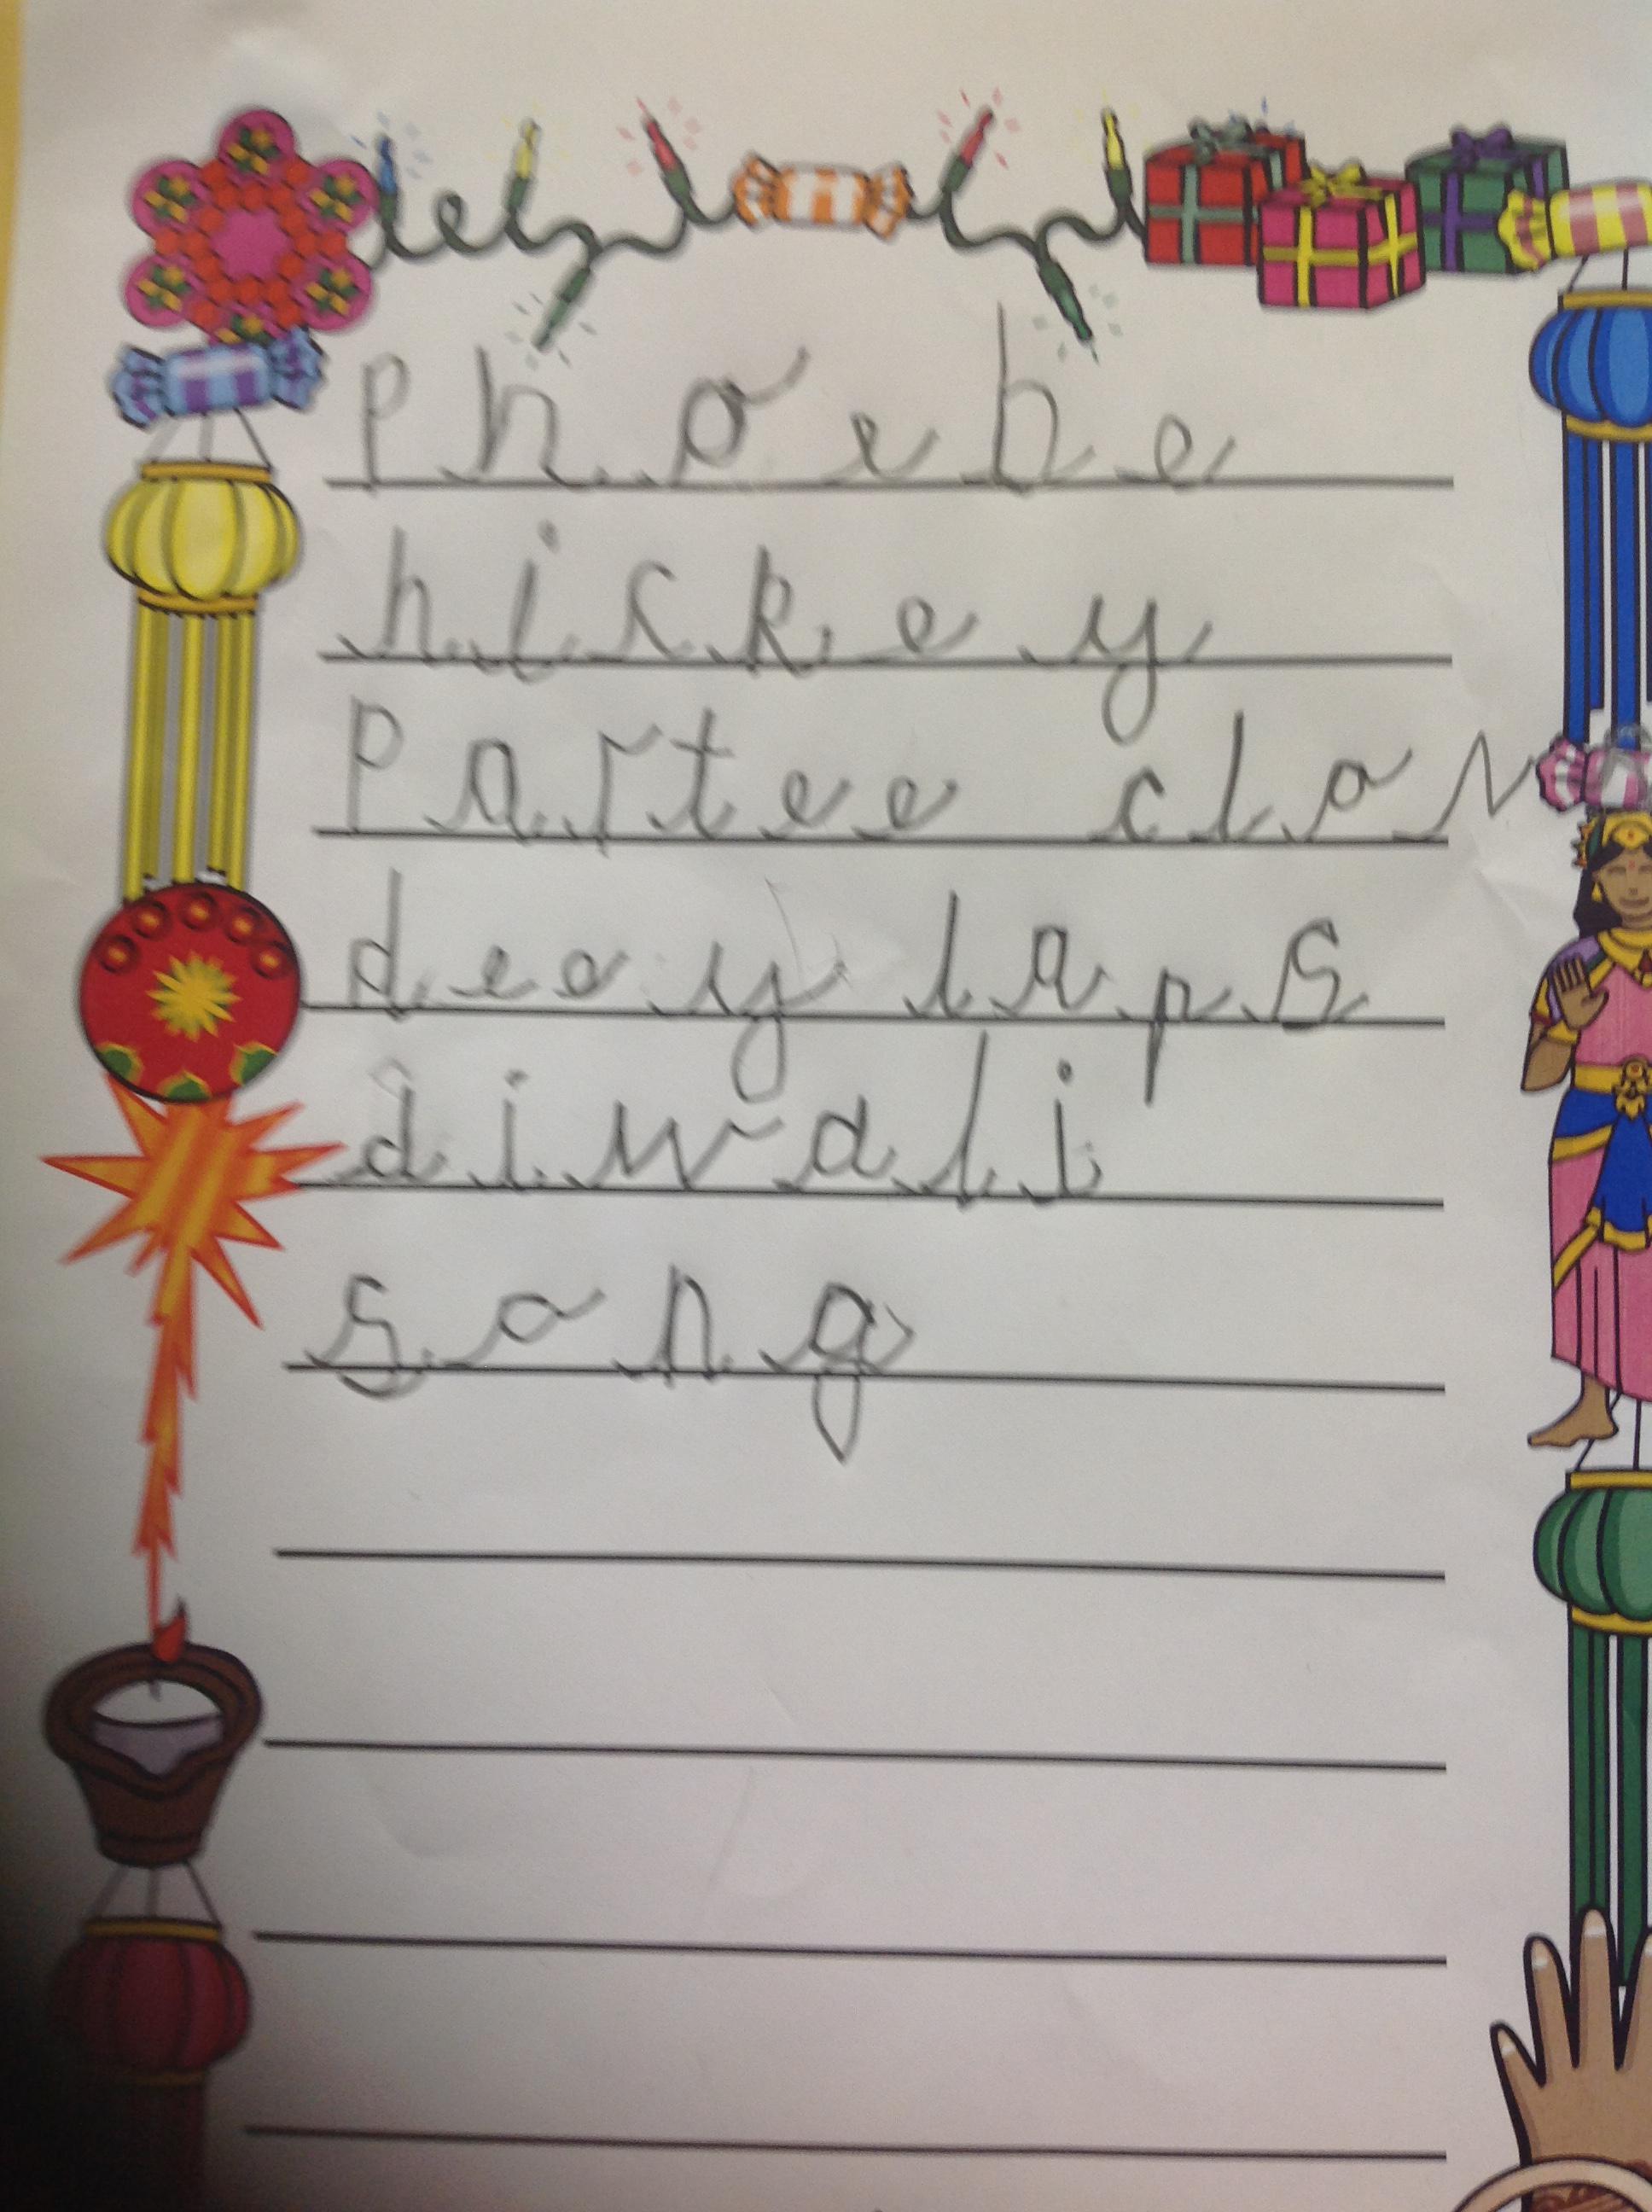 Phoebe
hickey
Partee clow
deey laps
diwali
song